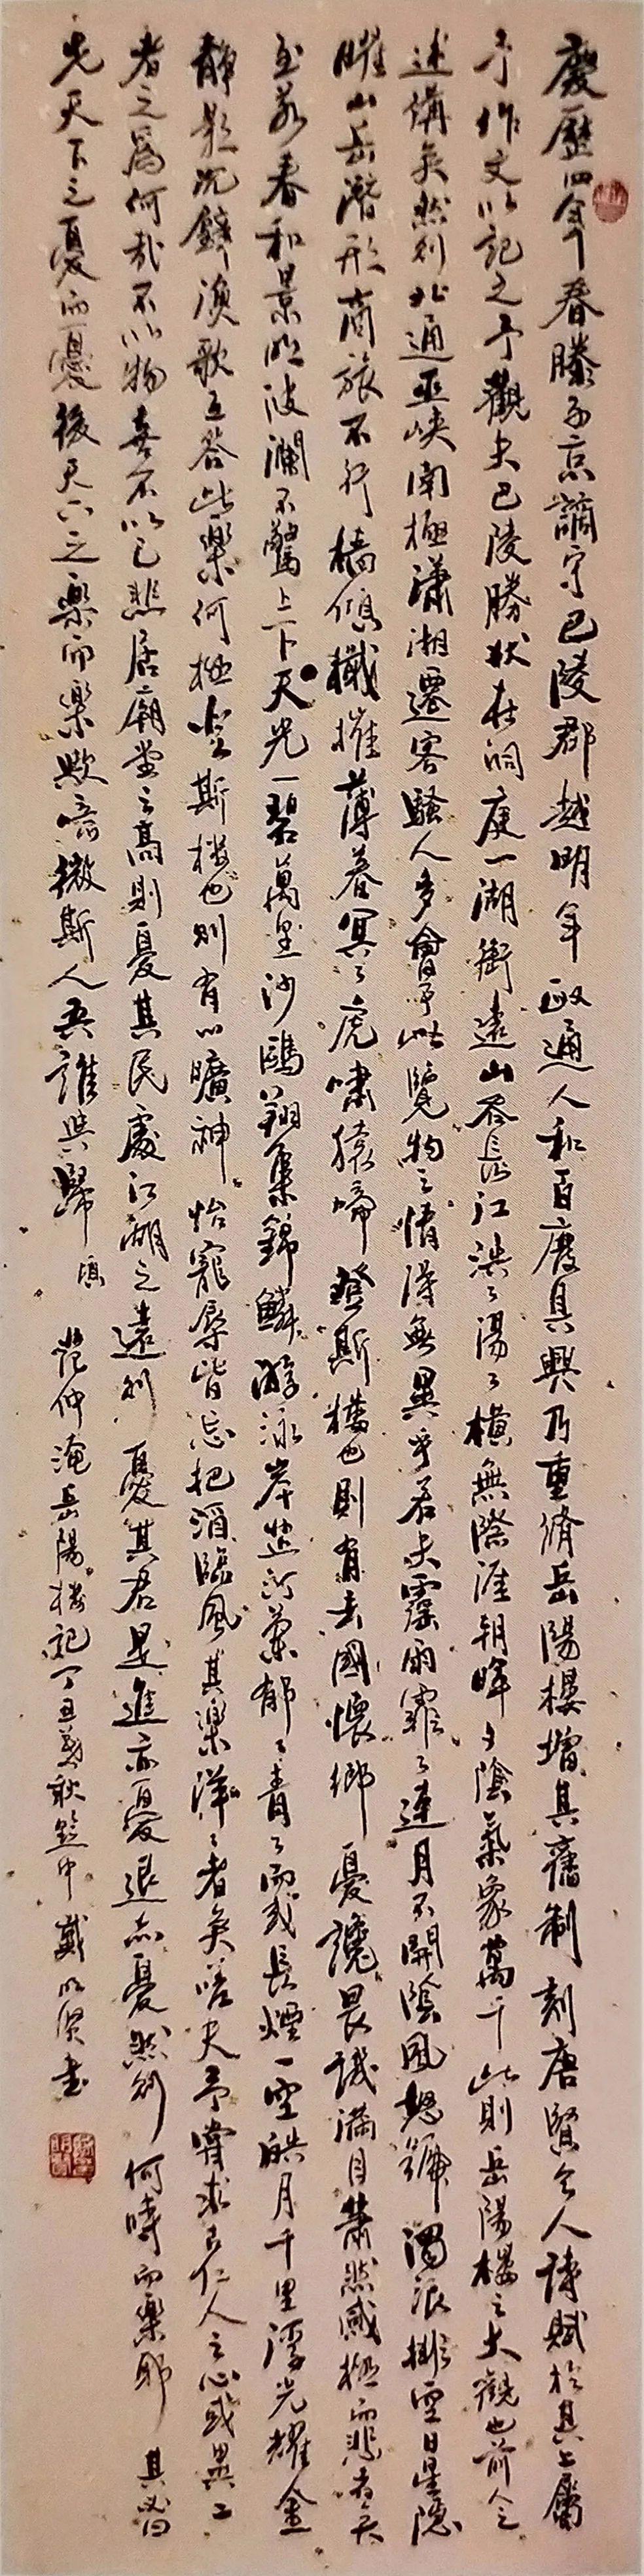 慶歷四年春滕子京謫守巴陵郡越明年政通人和百廢具興乃重脩岳陽樓增其舊制刻唐賢今人詩賦於其上屬
予作文以記之予觀夫巴陵勝狀在洞庭一湖銜遠山吞長江浩〻湯〻橫無際涯朝暉夕陰氣象萬千此則岳陽樓之大觀也前人之
述備矣然則北通巫峽南極瀟湘遷客騷人多會于此覽物之情得無異乎若夫霪雨霏〻連月不開陰風怒號濁浪排空日星隱
曜山岳潛形商旅不行檣傾檝摧薄暮冥〻虎嘯猿啼登斯樓也則有去國懷鄉憂讒畏譏滿目蕭然感極而悲者矣
至若春和景明波瀾不驚上下天光一碧萬里沙鷗翔集錦鱗游泳岸芷汀蘭郁〻青〻而或長煙一空皓月千里浮光耀金
靜影沉璧漁歌互答此樂何極登斯樓也則有心曠神怡寵辱皆忘把酒臨風其樂洋〻者矣嗟夫予嘗求古仁人之心或異二
者之為何哉不以物喜不以己悲居廟堂之高則憂其民處江湖之遠則憂其君是進亦憂退亦憂然則何時而樂耶其必曰
先天下之憂而憂後天下之樂而樂歟噫微斯人吾誰與歸 范仲淹岳陽樓記丁丑秋 戴明賢書